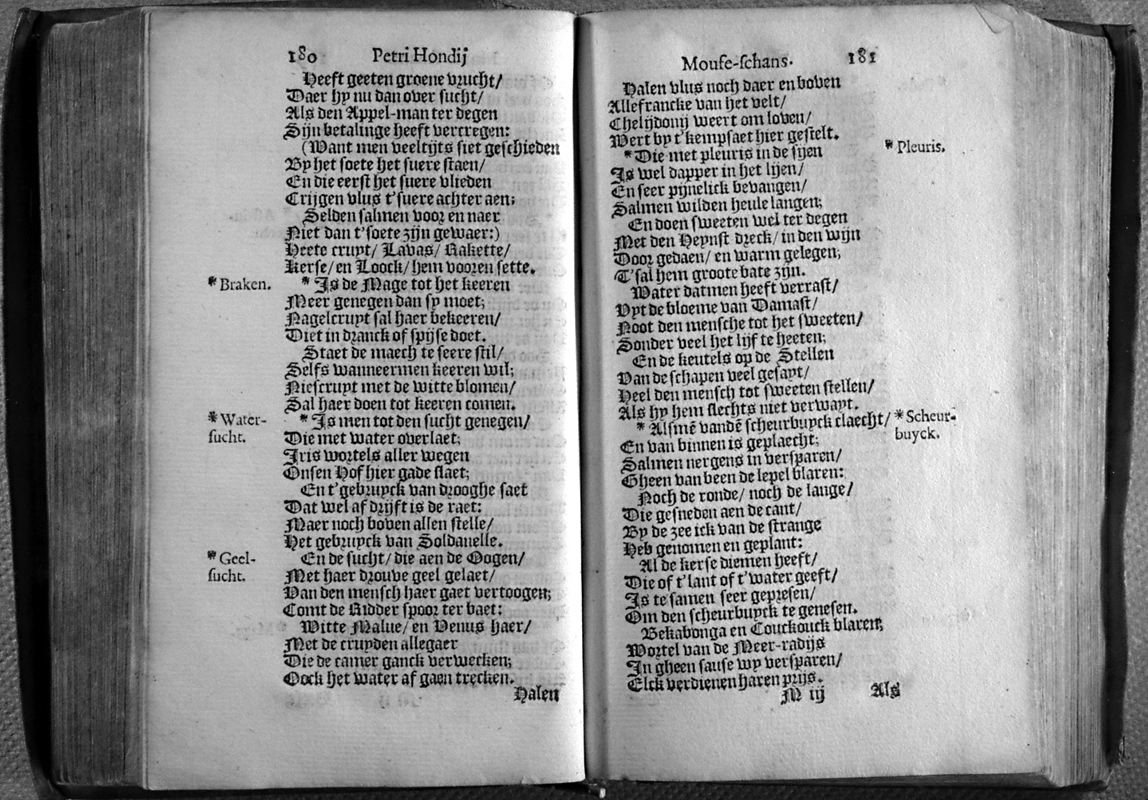 180 Petri Hondij
Heeft geeten groene vrucht/
Daer hy nu dan over sucht/
Als den Appel-man ter degen
Sijn betalinge heeft vercregen:
(Want men veeltijts siet geschieden
By het soete het suere staen/
En die eerst het suere vlieden
Crijgen vlus t'suere achter aen;
Selden salmen voor en naer
Niet dan t'soete zijn gewaer:)
Heete cruyt/ Lavas/ Rakette/
Kerse/ en Loock/ hem vooren sette.
* Braken. * Is de Mage tot het keeren
Meer genegen dan sy moet;
Nagelcruyt sal haer bekeeren/
Diet in dranck of spijse doet.
Staet de maech te seere stil/
Selfs wanneermen keeren wil;
Niescruyt met de witte blomen/
Sal haer doen tot keeren comen.
* Water-sucht. * Is men tot den sucht genegen/
Die met water overlaet;
Iris wortels aller wegen
Onsen Hof hier gade slaet;
En t'gebruyck van drooghe saet
Dat wel af drijft is de raet:
Maer noch boven allen stelle/
Het gebruyck van Soldanelle.
* Geel-sucht. En de sucht/ die aen de Oogen/
Met haer drouve geel gelaet/
Van den mensch haer gaet vertoogen;
Comt de Ridder spoor ter baet:
Witte Malue/ en Venus haer/
Met de cruyden allegaer
Die de camer ganck verwecken;
Oock het water af gaen trecken.
Halen
Mouse-schans. 181
Halen vlus noch daer en boven
Allefrancke van het velt/
Chelijdonij weert om loven/
Wert by t'kempsaet hier gestelt.
* Die met pleuris in de sijen * Pleuris.
Is wel dapper in het lijen/
En seer pijnelick bevangen/
Salmen wilden heule langen;
En doen sweeten wel ter degen
Met den Heynst dreck/ in den wijn
Door gedaen/ en warm gelegen;
T'sal hem groote bate zijn.
Water datmen heeft verrast/
Uyt de bloeme van Damast/
Noot den mensche tot het sweeten/
Sonder veel het lijf te heeten;
En de keutels op de Stellen
Van de schapen veel gesayt/
Heel den mensch tot sweeten stellen/
Als hy hem slechts niet verwayt.
* Alsmē vandē scheurbuyck claecht/ * Scheur-buyck.
En van binnen is geplaecht;
Salmen nergens in versparen/
Gheen van been de lepel blaren:
Noch de ronde/ noch de lange/
Die gesneden aen de cant/
By de zee ick van de strange
Heb genomen en geplant:
Al de kerse diemen heeft/
Die of t'lant of t'water geeft/
Is te samen seer gepresen/
Om den scheurbuyck te genesen.
Bekabonga en Couckouck blaren;
Wortel van de Meer-radijs
In gheen sause wy versparen/
Elck verdienen haren prijs.
M iij Als